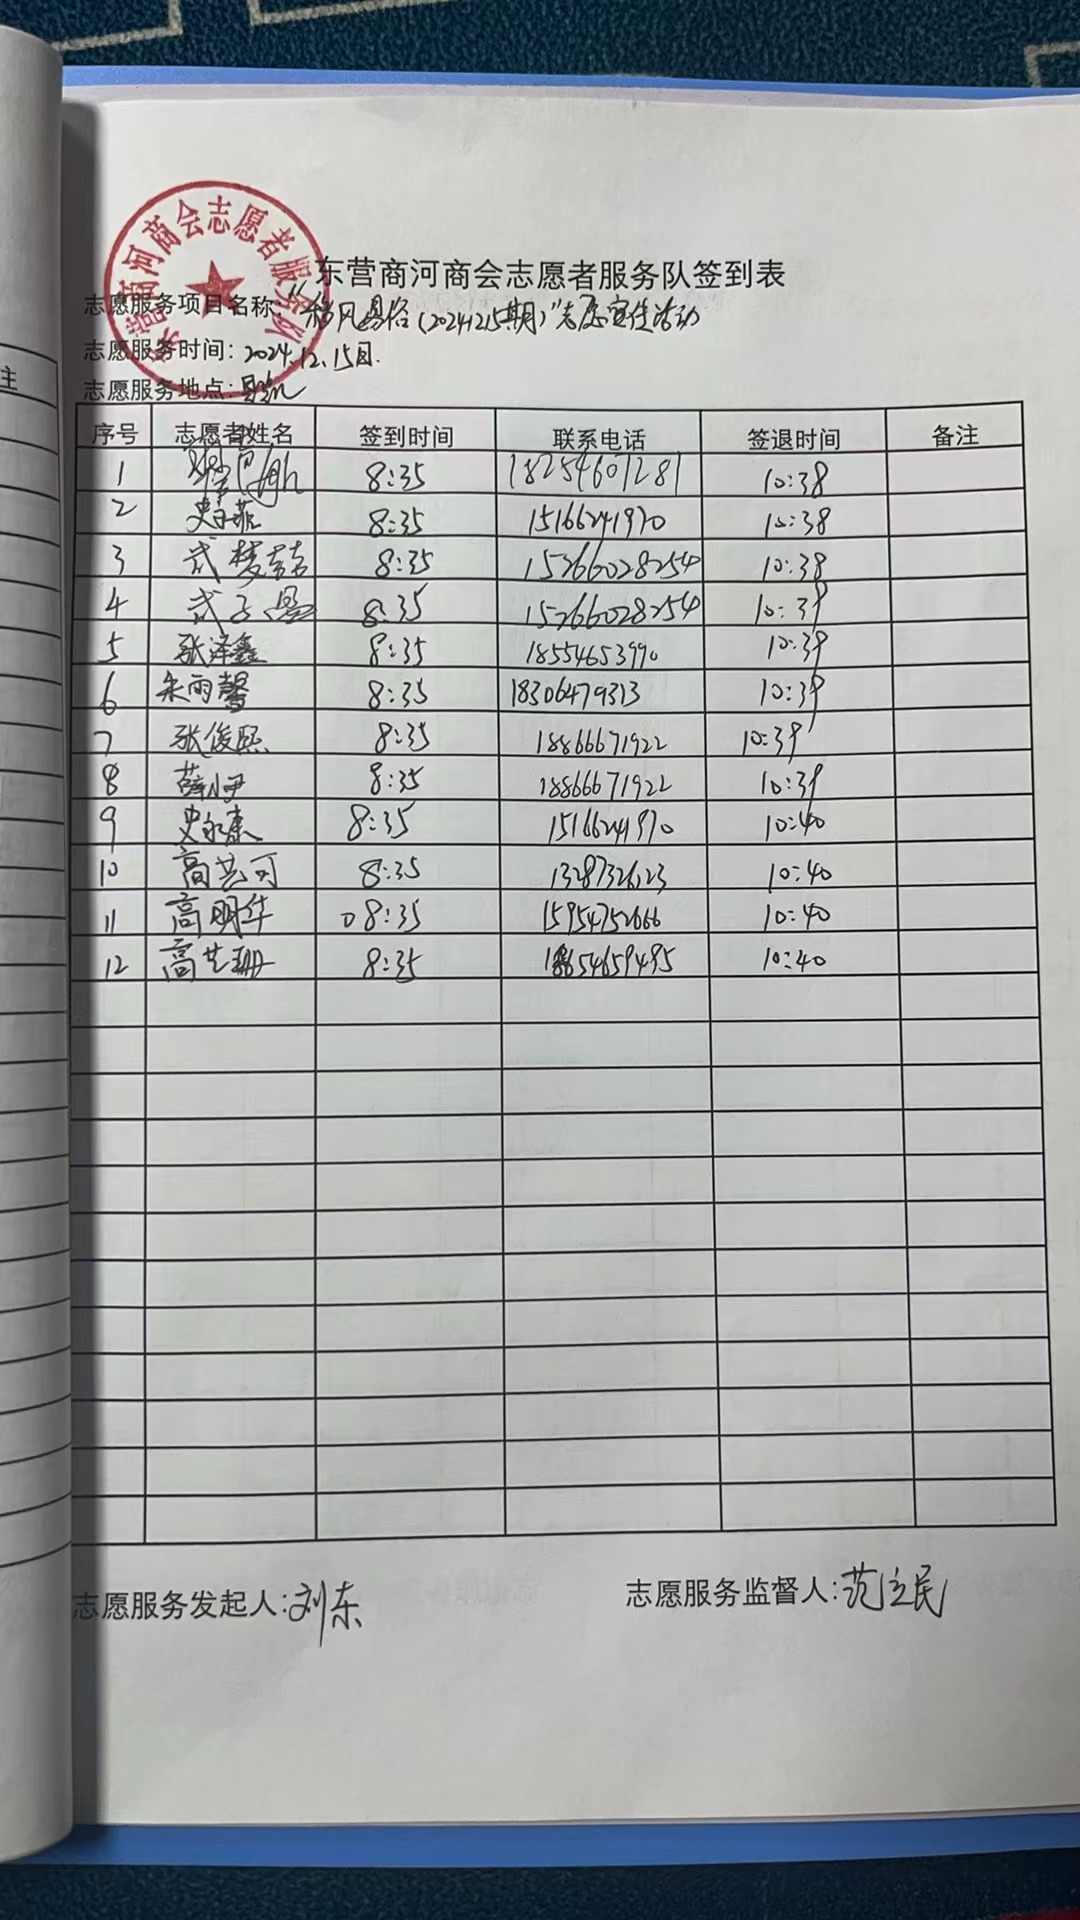 东营商河商会志愿者服务队
东营商河商会志愿者服务队签到表
志愿服务项目名称:"移风易俗(20241215期)"志愿宣传活动
志愿服务时间:2024.12.15日.
志愿服务地点:
注
序号 志愿者姓名 签到时间 联系电话 签退时间 备注
1 8:35 18254607281 10:38
2 史子菲 8:35 15166241970 10:38
3 武梦喆 8:35 15266028254 10:38
4 武子 8:35 15266028254 10:39
5 张泽鑫 8:35 18554653990 10:39
6 朱雨馨 8:35 18306479313 10:39
7 张俊熙 8:35 18866671922 10:39
8 薛小尹 8:35 18866671922 10:39
9 史永康 8:35 15166241970 10:40
10 高艺可 8:35 13287326123 10:40
11 高明华 08:35 15954752666 10:40
12 高艺珊 8:35 18654659495 10:40
志愿服务发起人:刘东 志愿服务监督人:范立民